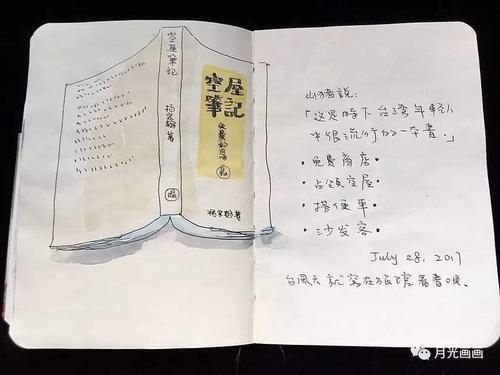 空屋筆記
楊宗翰 著
空屋
筆記
免費的自由
楊宗翰著
山猪說：
「这是時下台湾年轻人
中很流行的一本書。」
• 免費商店
• 占領空屋
• 搭便車
• 沙发客
July 28, 2017
台風天就窩在旅馆看書唄。
月光画画